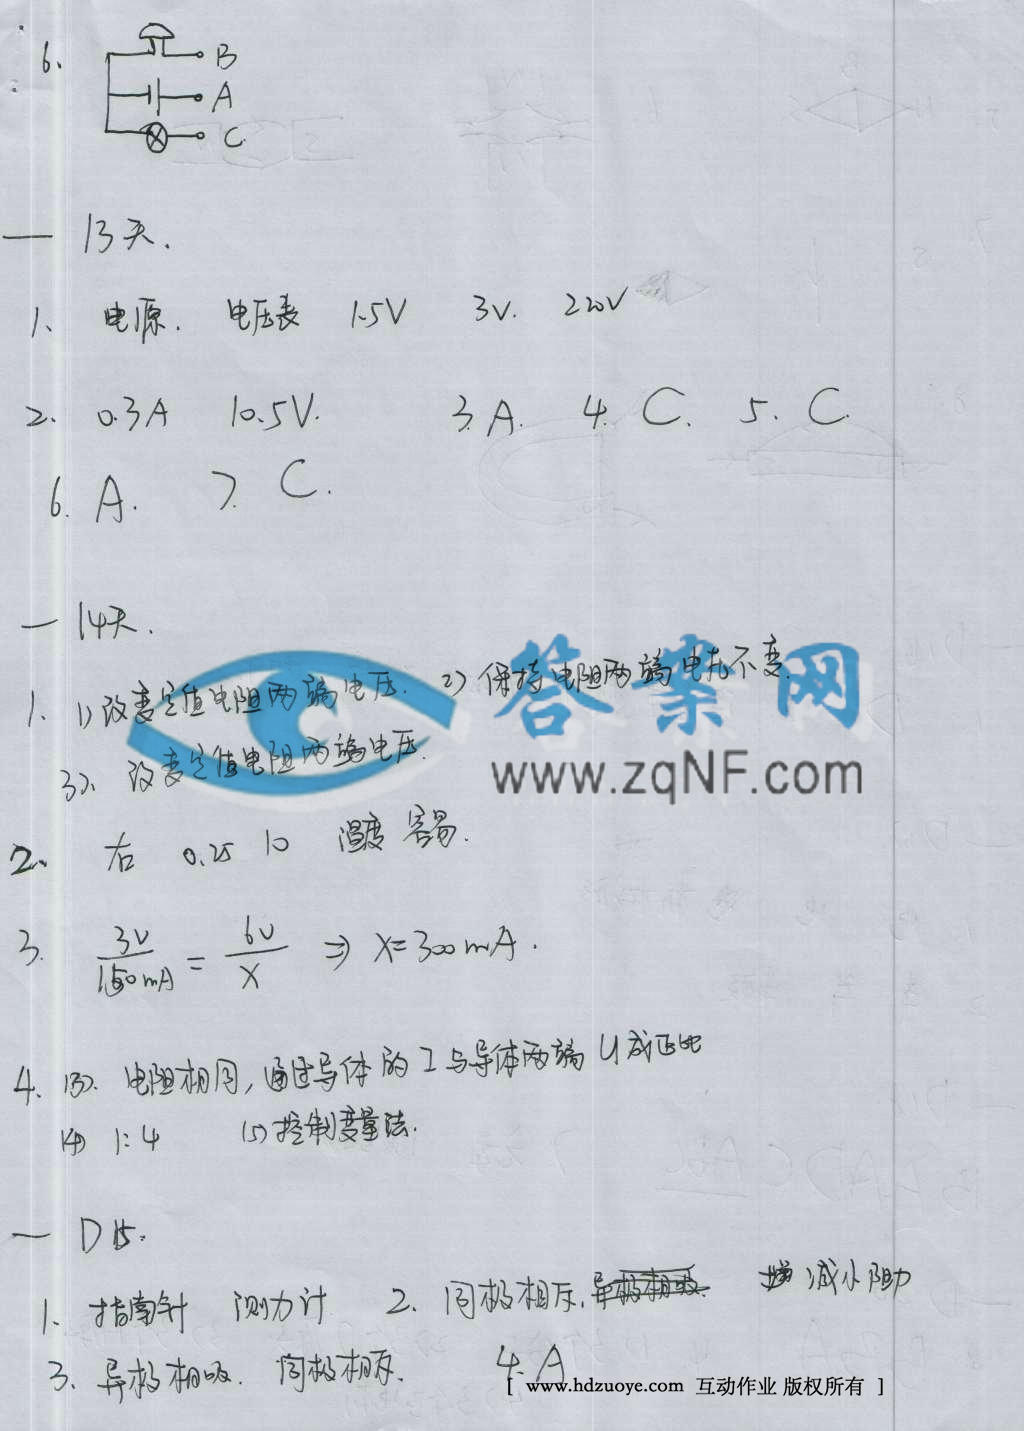 6.
B
A
C
一 13天.
1. 电源. 电压表 1.5V 3V. 220V
2. 0.3A 10.5V. 3.A. 4. C. 5. C.
6. A. 7. C.
一 14天.
1. 1) 改变定值电阻两端电压. 2) 保持电阻两端电压不变.
3). 改变定值电阻两端电压.
答案网
www.zqNF.com
2. 右 0.25 10 温度 容易.
3. 3V/150mA = 6V/X ⇒ X=300mA.
4. (3). 电阻相同,通过导体的I与导体两端U成正比
(4) 1:4 (5) 控制变量法.
一 D15.
1. 指南针 测力计 2. 同极相斥. 减小阻力
3. 异极相吸. 同极相斥. 4. A
[ www.hdzuoye.com 互动作业 版权所有 ]